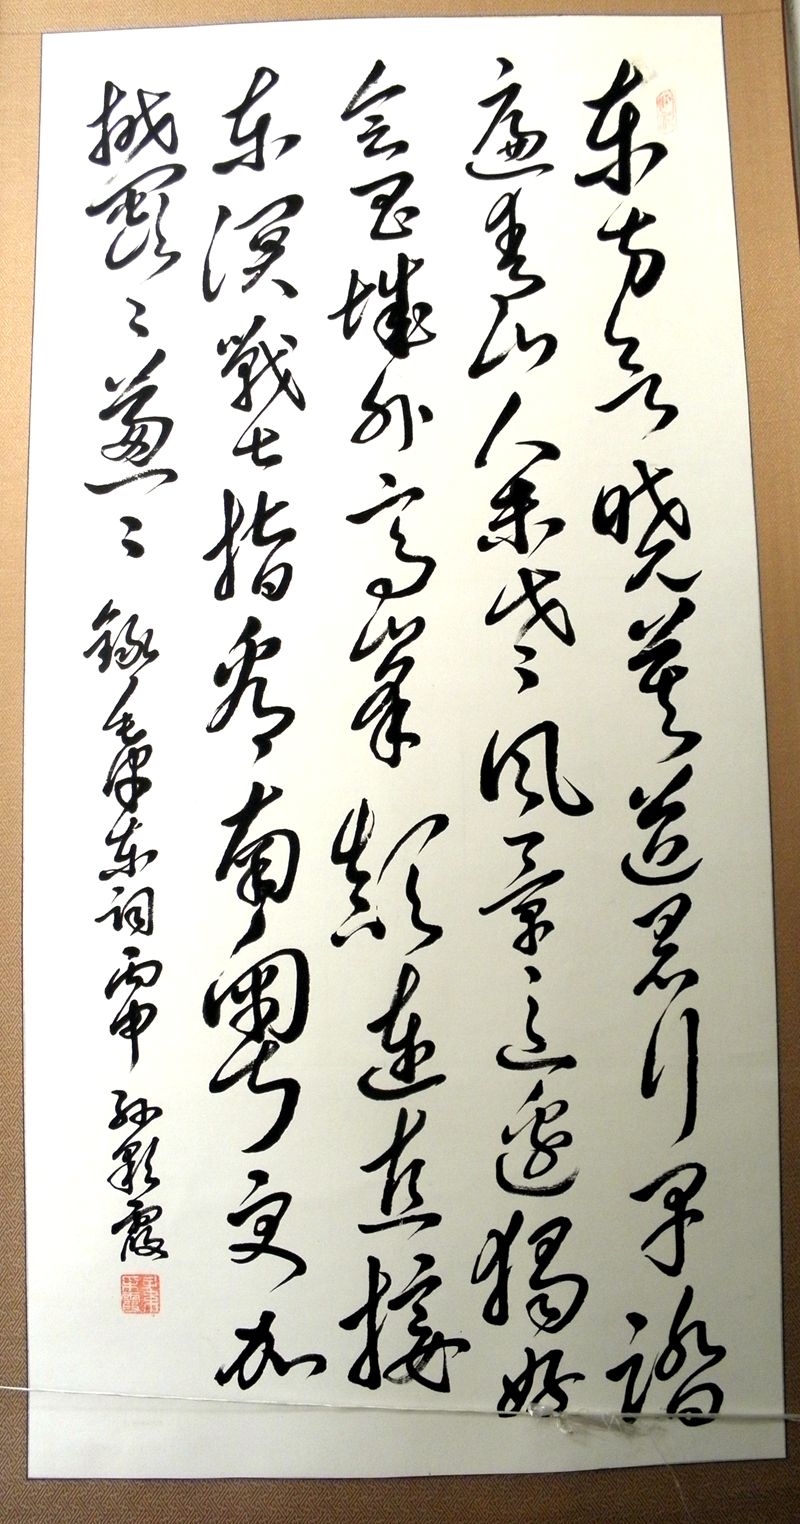 东方欲晓莫道君行早踏
遍青山人未老风景这边獨好
会昌城外高峰颠连直接
东溟戰士指看南粤更加
鬱々葱々 錄毛泽东词 丙申 孙彩霞